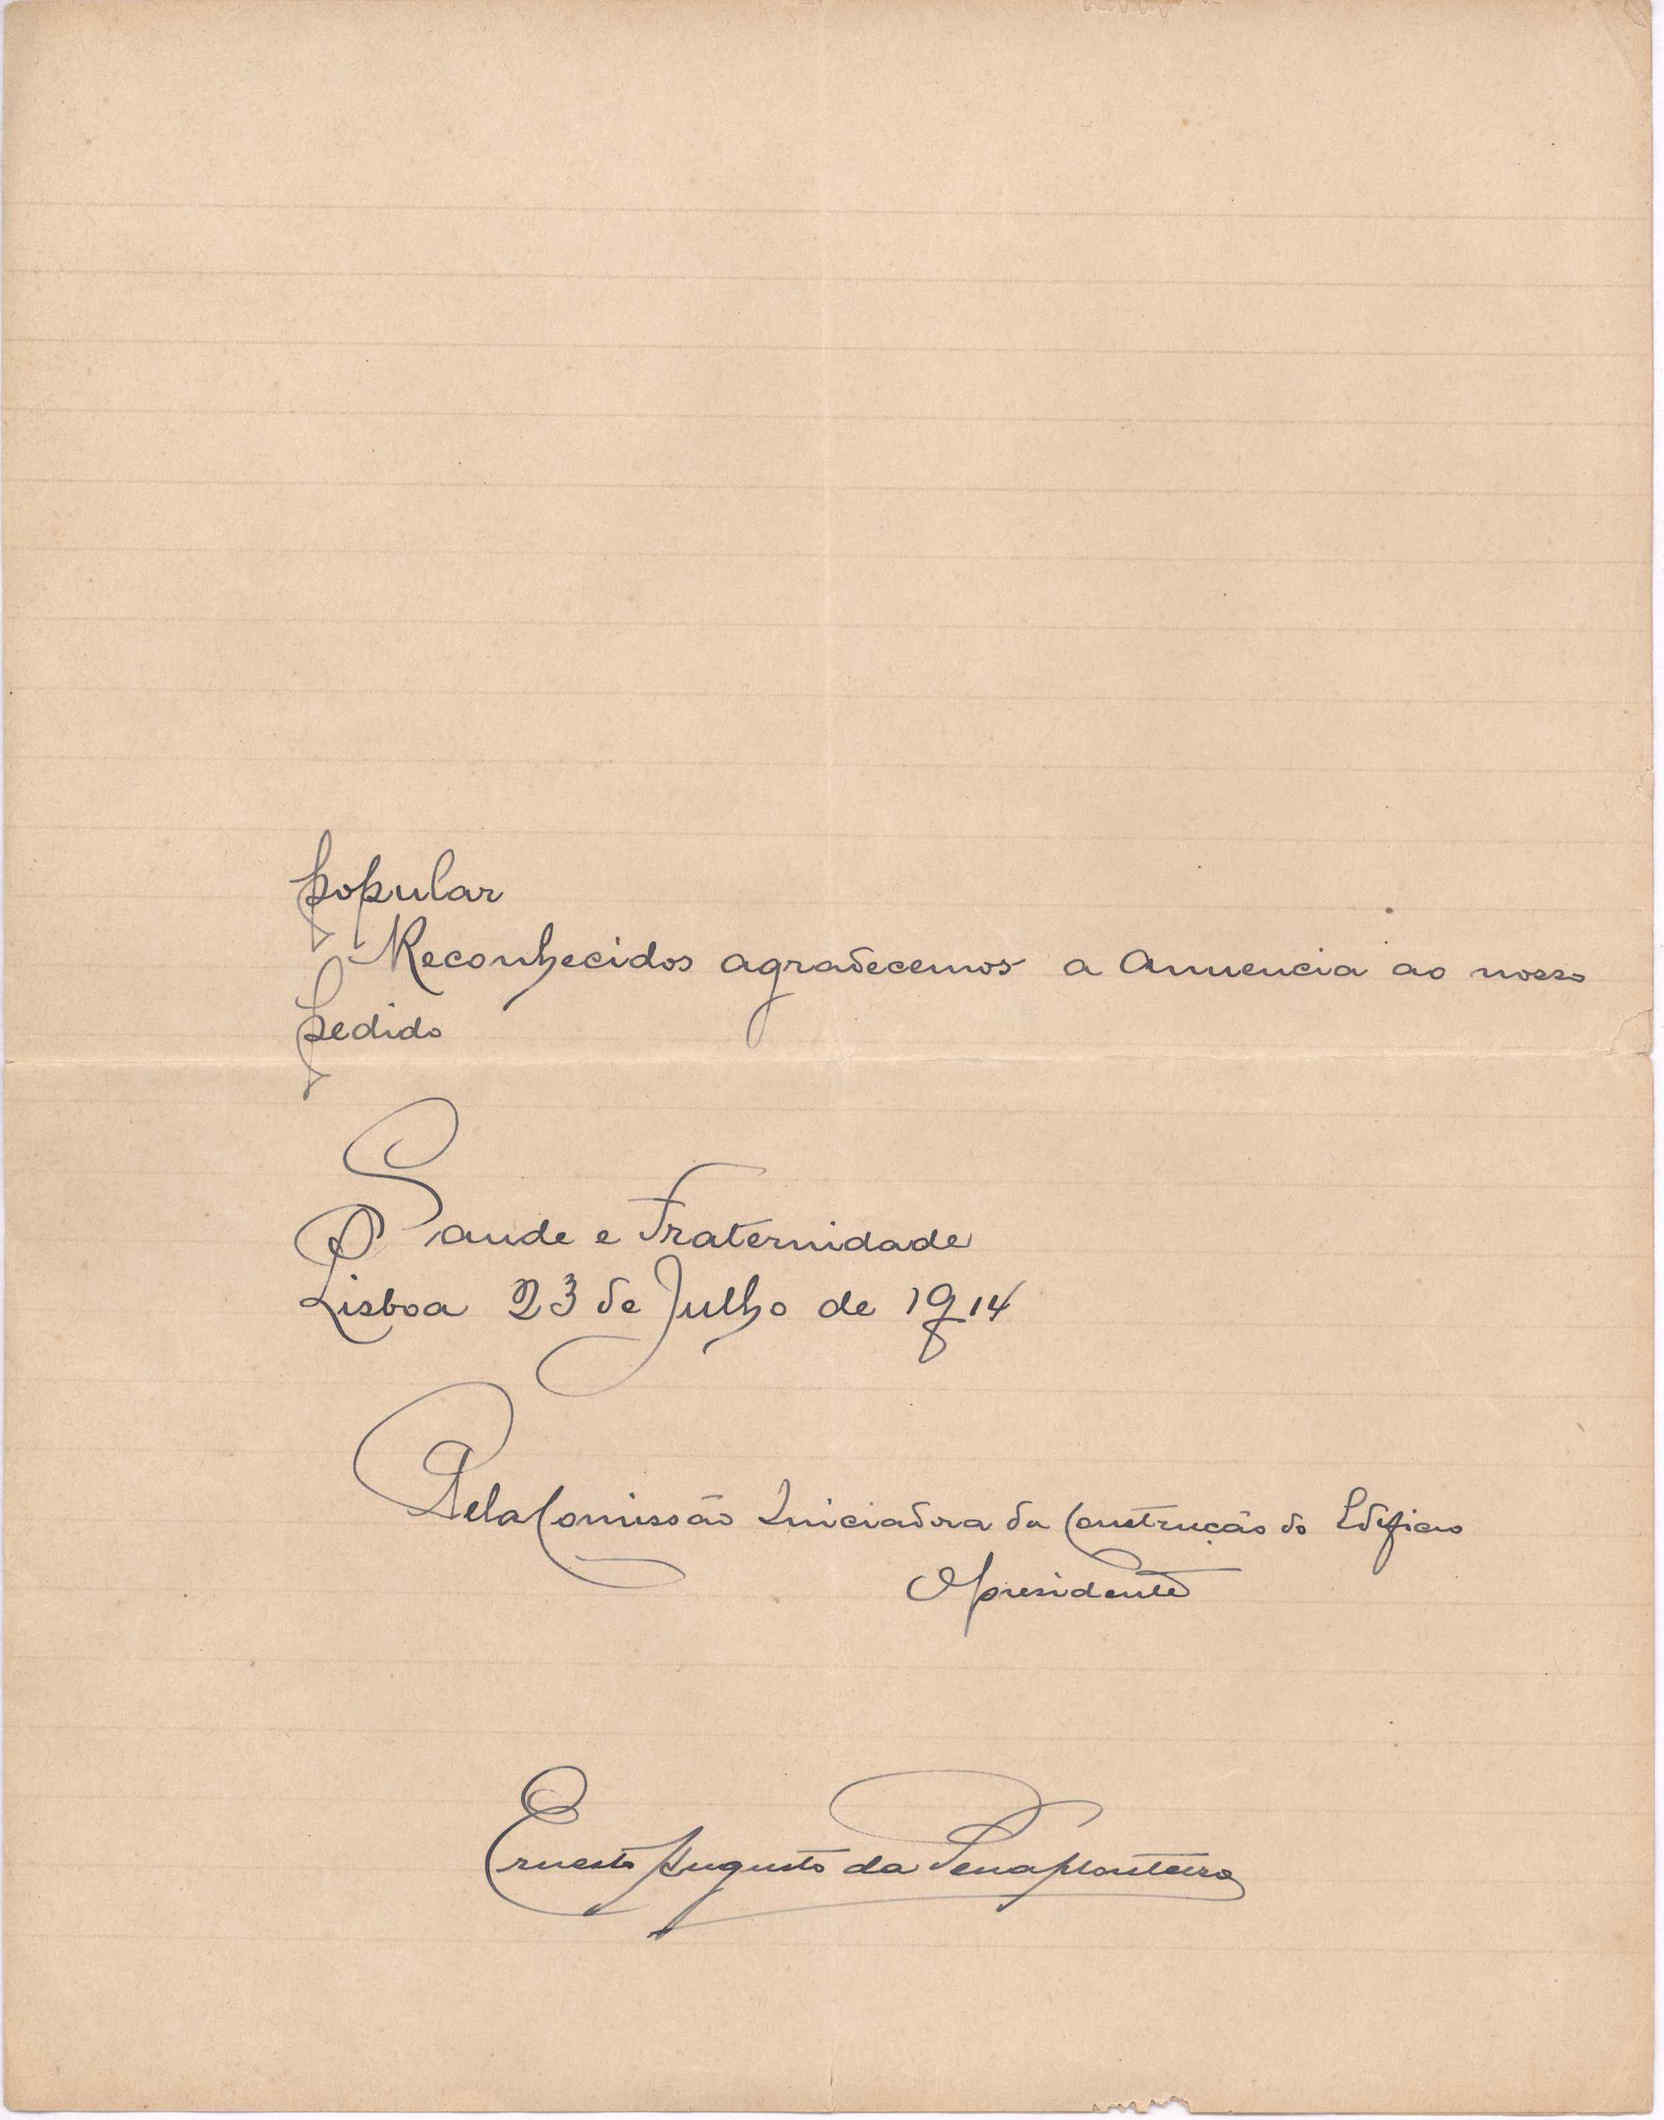 popular
Reconhecidos agradecemos a anuencia ao nosso
pedido
Saude e Fraternidade
Lisboa 23 de Julho de 1914
Pela Comissão Iniciadora da Construcção do Edificio
O presidente
Ernesto Augusto da Pena Monteiro